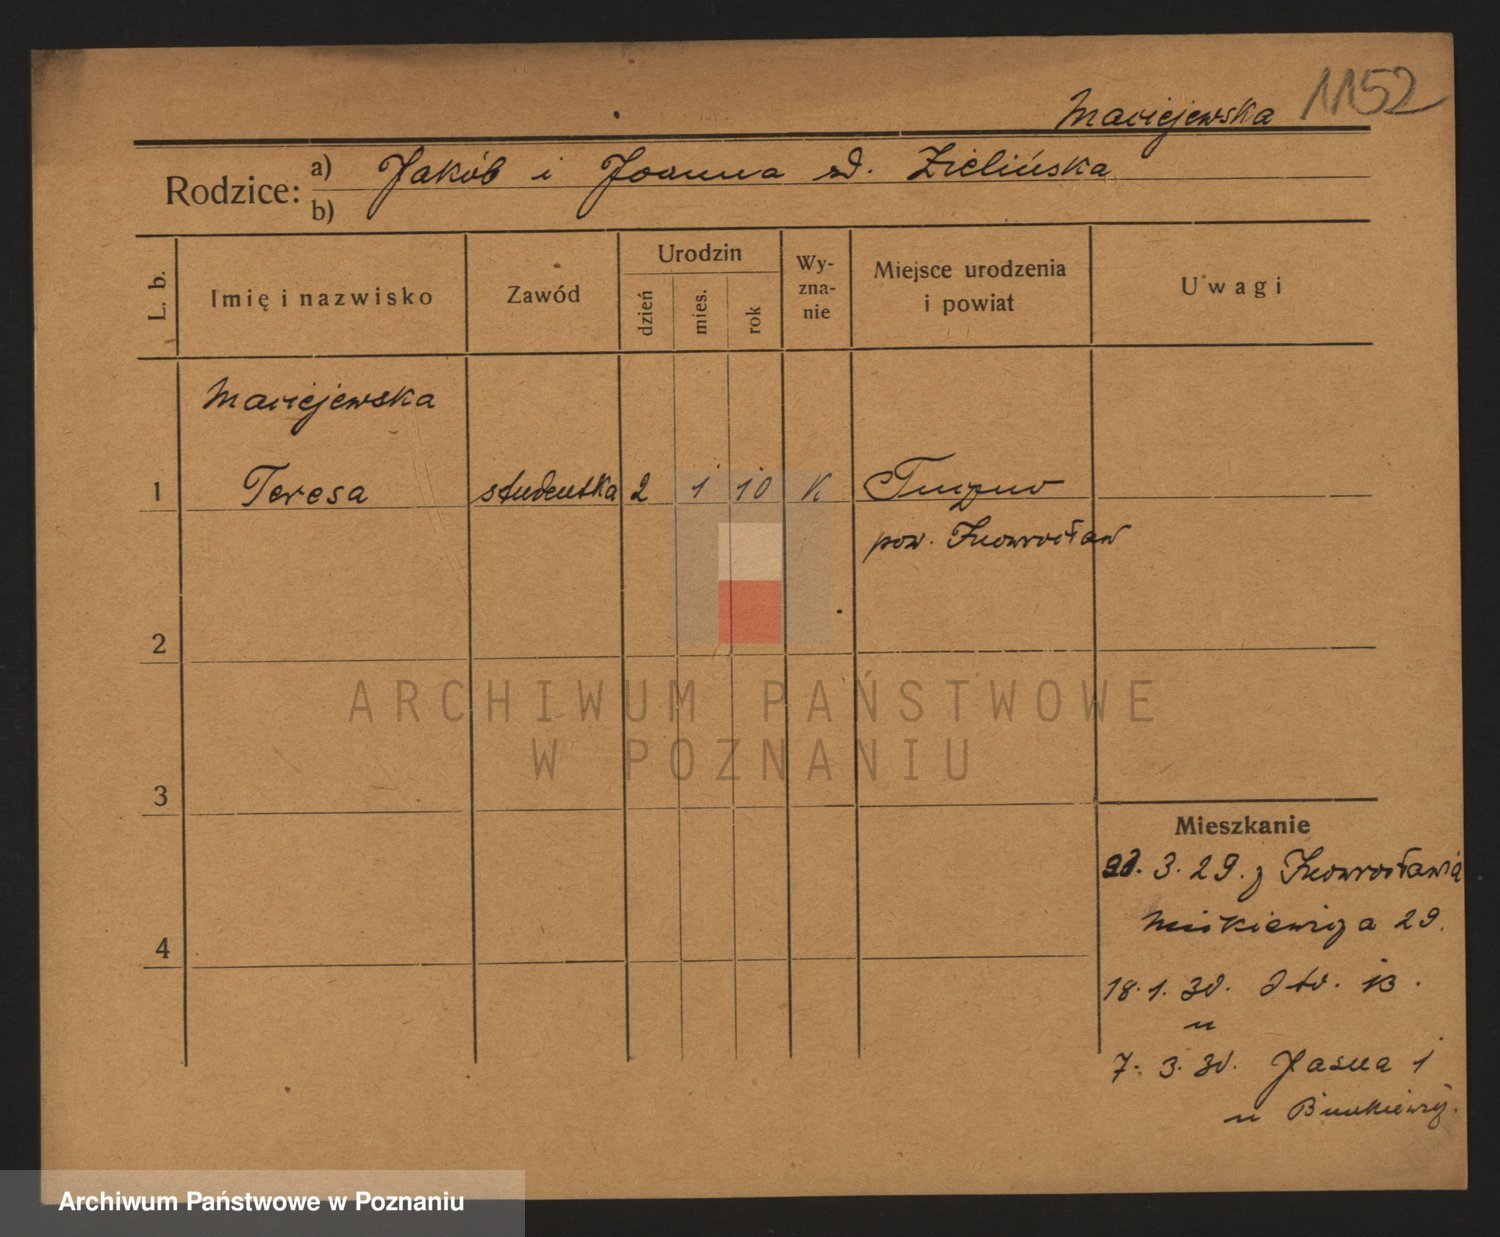 1152
Maciejewska
Rodzice: a) Jakób i Joanna zd. Zielińska
b)
L. b. Imię i nazwisko Zawód Urodzin dzień mies. rok Wy-zna-nie Miejsce urodzenia i powiat Uwagi
Maciejewska
1 Teresa studentka 2 1 10 K
pow. Inowrocław
2
ARCHIWUM PAŃSTWOWE
W POZNANIU
3
Mieszkanie
3. 29. z Inowrocławia
Mickiewicza 29.
4
18. 1. 30.
7. 3. 30. Jasna 1
u
Archiwum Państwowe w Poznaniu